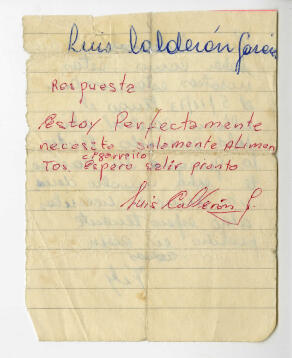 Luis Calderón García
Respuesta
Estoy Perfectamente
necesito solamente Alimen
cigarrillo
Tos espero salir pronto
Luis Calderón G.